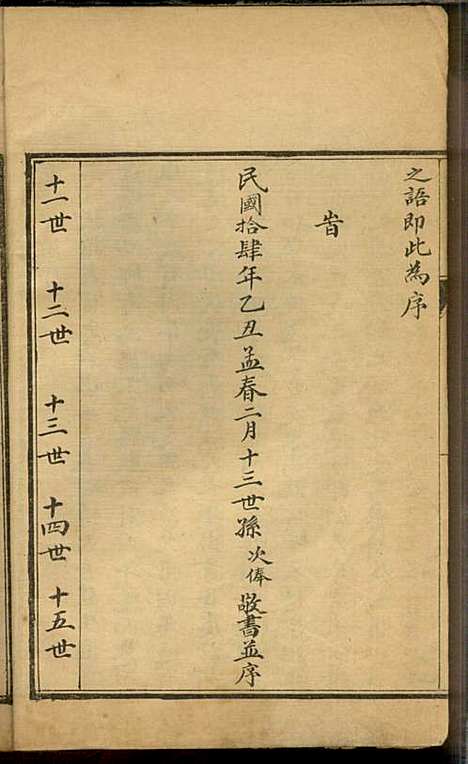 之語即此為序
旹
民國拾肆年乙丑孟春二月十三世孫次俸敬書並序
十一世 十二世 十三世 十四世 十五世